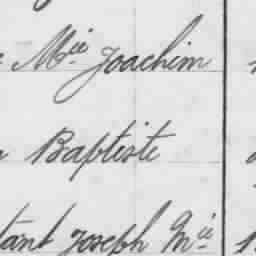 Mie Joachim
Baptiste
tant Joseph Mie